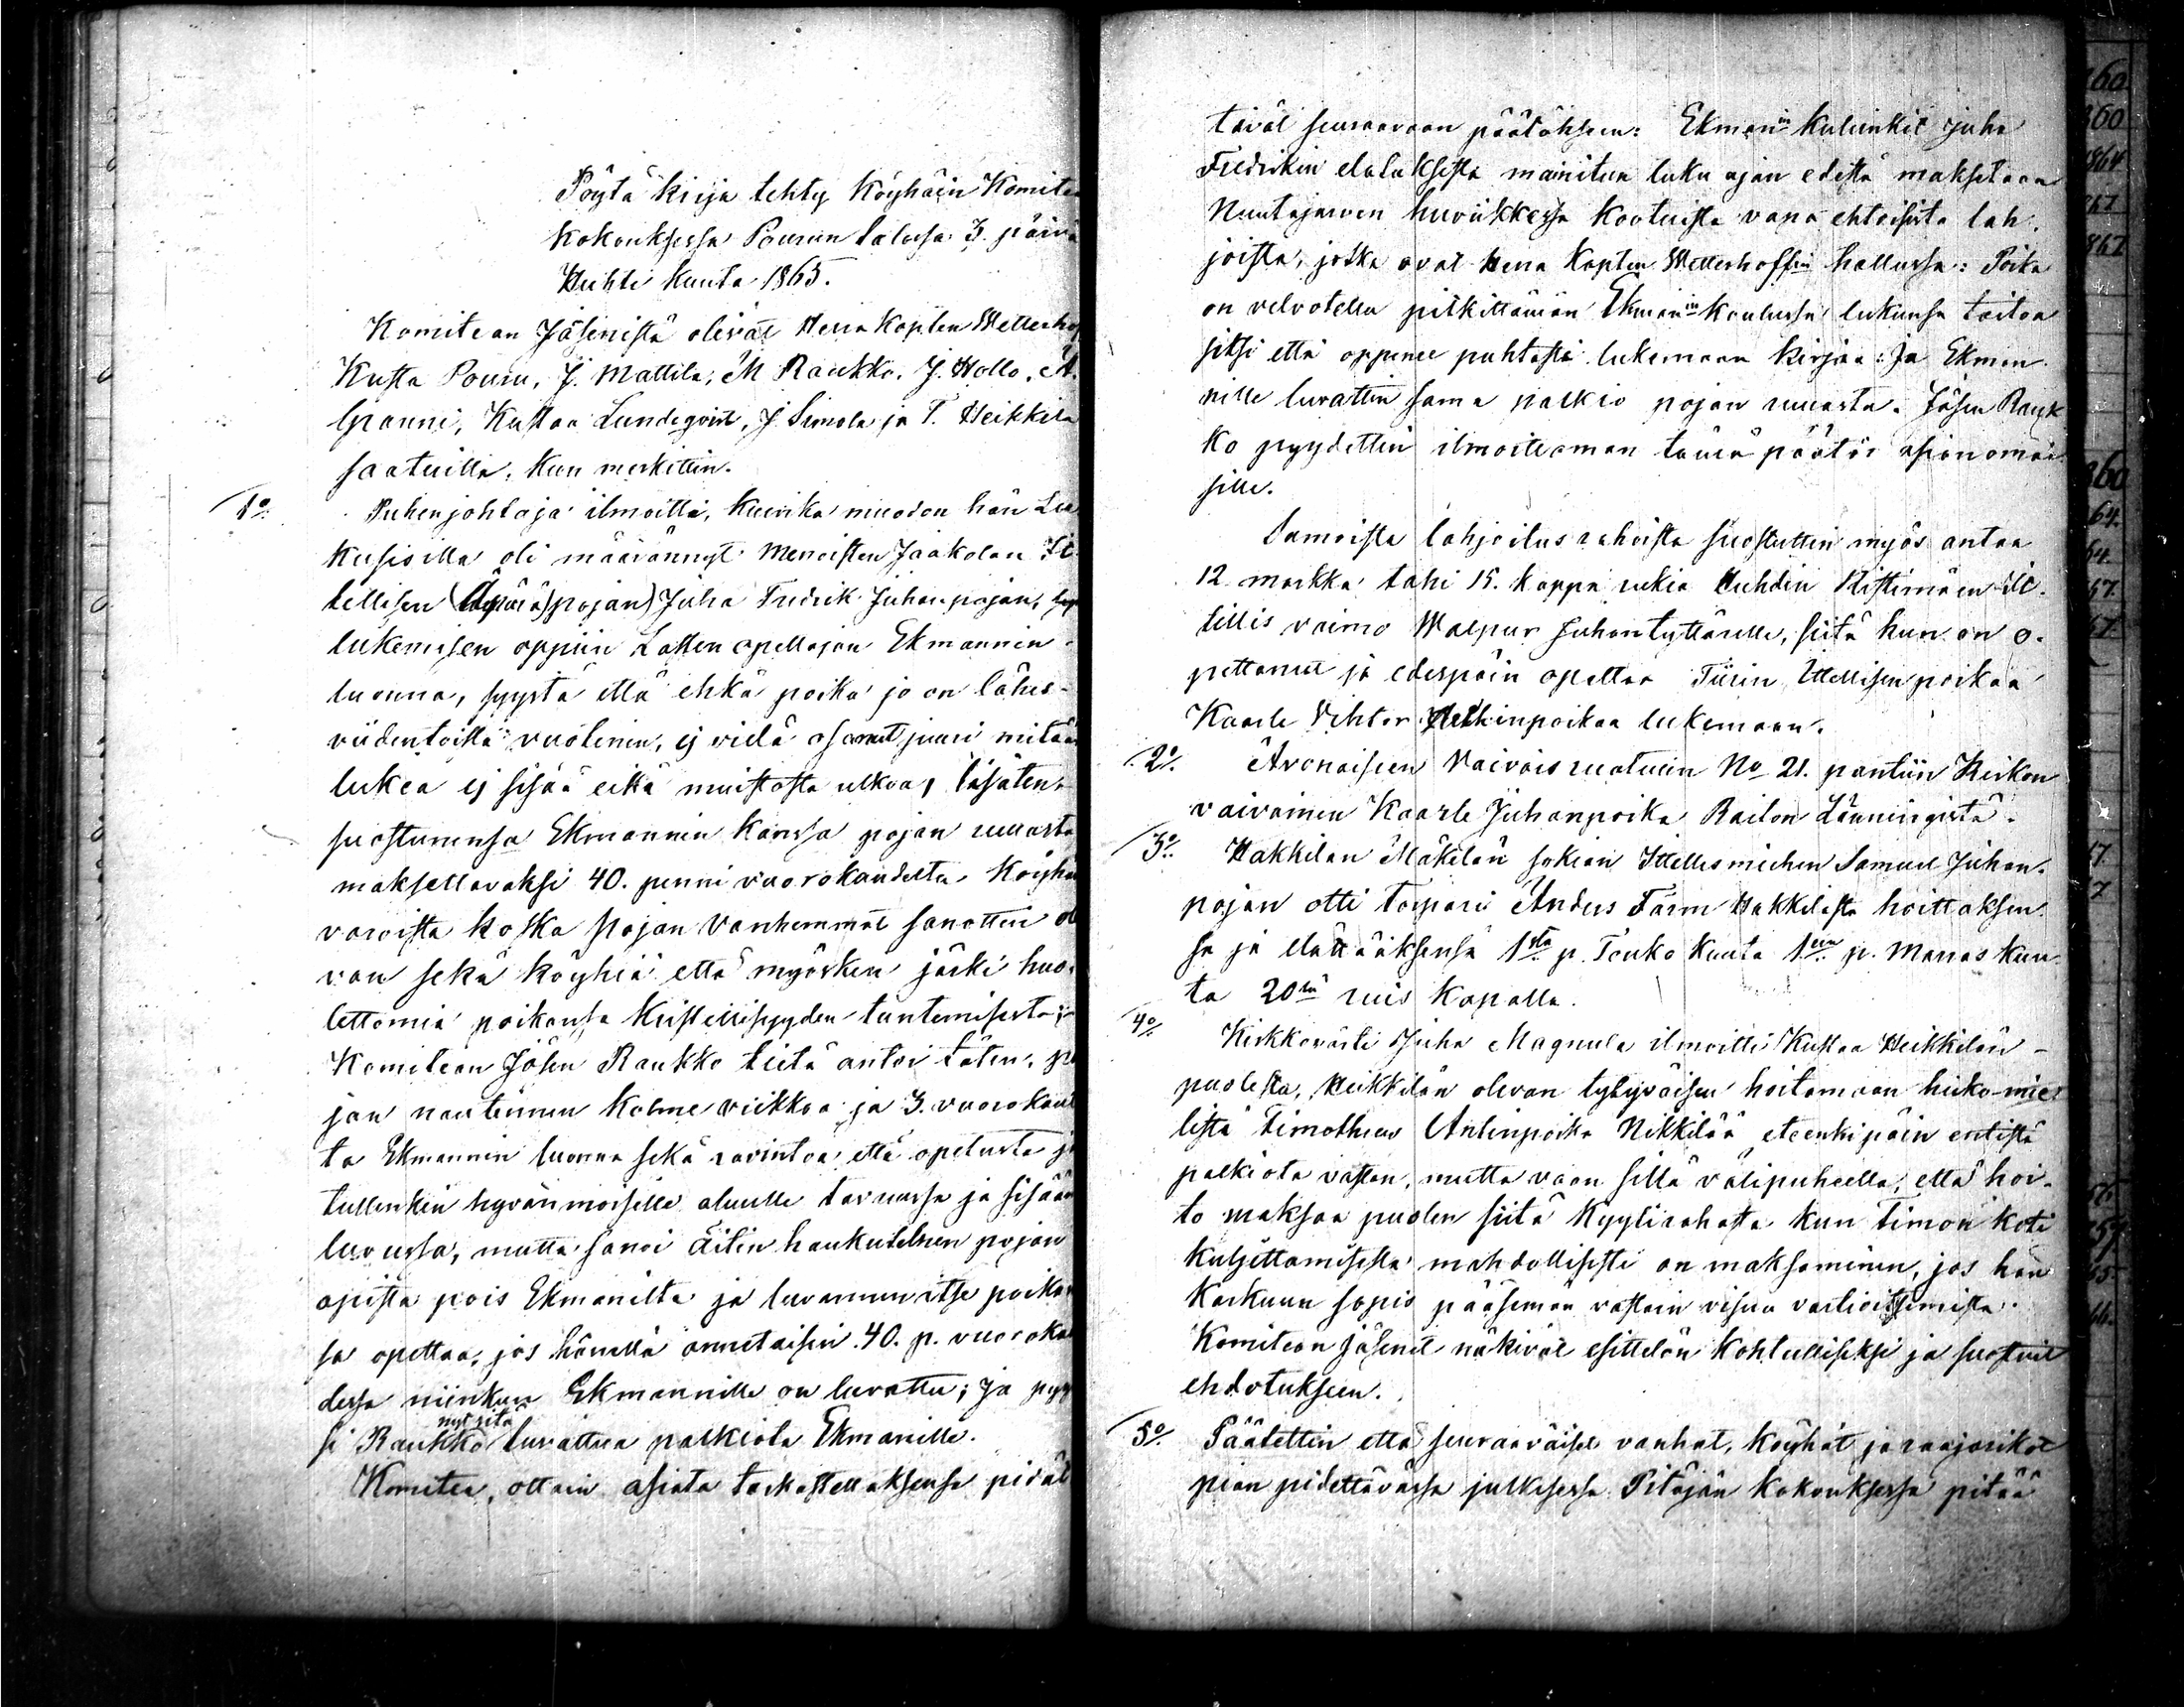 Pöytä kirja tehty Köyhäin Komitea
Kokouksessa Pourun talossa 3. päivä
Huhti kuuta 1865.
Komitean Jäsenistä olivat Herra Kapten Wetterhof
Kusta Pouru, J. Mattila, M Raukko. J. Hollo. A.
Granni, Kustaa Lundeqvist, J Simola ja T. Heikkilä
saatuilla. Kun merkittin.
1o. Puhenjohtaja ilmoitti, kuinka muodon hän Lu
kusioilla oli määrännyt Menoisten Jaakolan It
tellisen (Äpärä)pojan) Juha Fredrik Juhanpojan,
lukemisen oppiin Lasten opettajan Ekmannin
luonna, syystä että ehkä poika jo on lähes-
viidentoista vuotinen, ej vielä osannut juuri mitään
lukea ej sisää eikä muistosta ulkoa, lisäten
suostunensa Ekmannin kanssa pojan ruuasta
maksettavaksi 40. penni vuorokaudelta. Köyhä
varoista koska pojan Vanhemmat sanottin ol
van sekä köyhiä että myösken järki huo-
lettomia poikansa Kristillisyyden tuntemisesta;
Komitean Jäsen Raukko tietä antoi täten, po
jan nautinnen Kolme viikkoa ja 3. vuorokaut
ta Ekmannin luonna sekä ravintoa että opetusta ja
tullenkin hyvänmoiselle aluulle tavuussa ja sisään
luvussa, mutta sanoi äitin haukutelneen pojan
opista pois Ekmanilta ja luvannun itse poikan
sa opettaa, jos hänellä annetaisin 40. p. vuoroka
dessa niinkun Ekmannille on luvattu; ja pyy
si Raukko nyt sitä luvattua palkiota Ekmanille.
Komitea, ottain asiata tarkastellaksensa pidät
tävät seuraavaan päätöksen: Ekmanin Kulunkit Juha
Fredrikin elatuksesta mainitun luku ajan edestä maksetaan
Nuutajärven huviikkessa Kootuista vapaehtoisista lah-
joista, jotka ovat Herra Kapten Wetterhoffin hallussa: Poika
on velvotettu pitkittämän Ekmanin Koulussa lukunsa taitoa
siksi että oppinee puhtasti lukemaan kirjaa: Ja Ekman
nille luvattin sama palkio pojan ruuasta. Jäsen Rauk
ko pyydettin ilmoittaman tämä päätös asianomai
sille.
Samoista lahjoitus rahoista suostuttin myös antaa
12 markka tahi 15. kappa rukia Huhdin Ristimäen Itt
tillis vaimo Walpur Juhontyttärelle, siitä kun on o-
pettanut ja edespäin opettaa Tiirin Ittellisen poikaa
Kaarle Vihtor Heikinpoikaa lukemaan.
2o. Avonaiseen Vaivaisruotuun No 21. pantiin Kirkon
vaivainen Kaarle Juhanpoika Railon Lanningista.
3o. Hakkilan Mäkelän sokian Ittellismiehen Samuel Juhan-
pojan otti torpari Anders Färm Hakkilasta hoittaksen
sa ja elättääksensä 1stä p. Touko kuuta 1een p. Marras kuu
ta 20tä ruis kapalla.
4o. Kirkkovärti Juha Magnula ilmoitti Kustaa Heikkilän
puolesta, Heikkilän olevan tytyväisen hoitamaan heiko-mie-
listä Timotheus Antinpoika Nikkilää eteenkipäin entistä
palkiota vastan, mutta vaan sillä välipuheella, että hoi-
to maksaa puolen siitä Kyytirahasta kun Timon koti
kuljettamisesta mahdollisesti on maksaminen, jos hän
karkuun sopis pääsemän vastoin visua vartioitsemista.
Komitean jäsenet näkivät esittelön kohtulliseksi ja suostuit
ehdotukseen.
5o. Päätettin että seuraavaiset vanhat, köyhät ja raajarikot
pian pidettävässä julkisessa Pitäjän Kokouksessa pitää